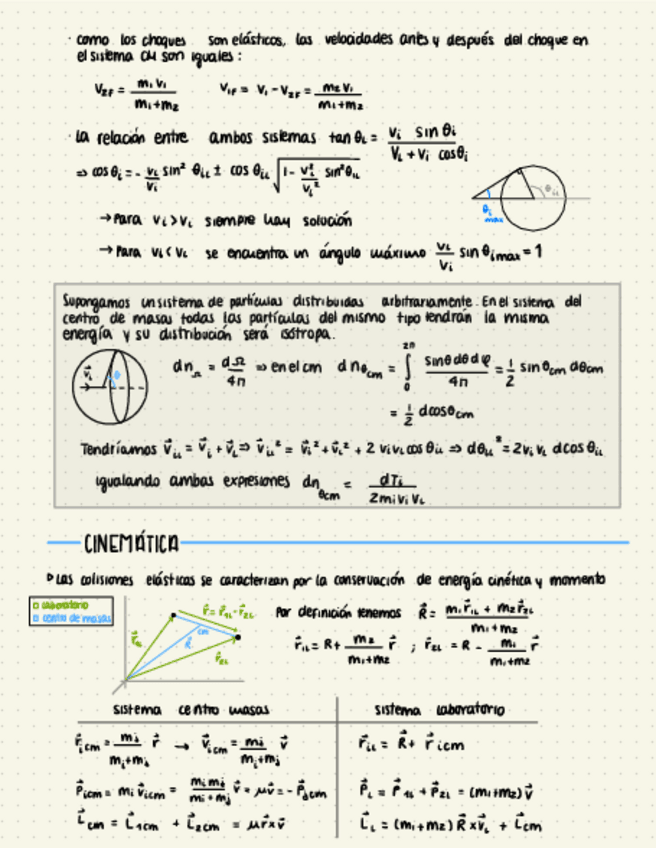 · como los choques son elásticos, las velocidades antes y después del choque en
el sistema CM son iguales:
V₂F = m₁V₁ / (m₁+m₂)   V₁F = V₁ - V₂F = m₂V₁ / (m₁+m₂)
· la relación entre ambos sistemas tan θL = Vi sin θi / (VL + Vi cosθi)
⇒ cosθi = - VL/Vi sin² θiL ± cos θiL √(1 - VL²/Vi² sin²θiL)
θiL
θi max
→ Para Vi > VL siempre hay solución
→ Para Vi < VL se encuentra un ángulo máximo VL/Vi sin θimax = 1
Supongamos un sistema de partículas distribuidas arbitrariamente. En el sistema del
centro de masas todas las partículas del mismo tipo tendrán la misma
energía y su distribución será isótropa.
V⃗i θ
dnΩ = dΩ/4π ⇒ en el cm dnθcm = ∫₀^2π sinθ dθ dφ / 4π = 1/2 sin θcm dθcm
= 1/2 dcosθcm
Tendríamos V⃗iL = V⃗i + V⃗L ⇒ V⃗iL² = V⃗i² + V⃗L² + 2 ViVL cos θiL ⇒ dθiL² = 2Vi VL dcos θiL
igualando ambas expresiones dnθcm = dTi / (2mi Vi VL)
CINEMÁTICA
▷ Las colisiones elásticas se caracterizan por la conservación de energía cinética y momento
laboratorio
centro de masas
r⃗ = r⃗₁L - r⃗₂L
r⃗₁L
cm
R⃗
r⃗₂L
Por definición tenemos R⃗ = (m₁r⃗₁L + m₂r⃗₂L) / (m₁+m₂)
r⃗₁L = R + m₂/(m₁+m₂) r⃗ ; r⃗₂L = R - m₁/(m₁+m₂) r⃗
sistema centro masas
sistema laboratorio
r⃗icm = mj/(mi+mj) r⃗ → V⃗icm = mj/(mi+mj) v⃗
r⃗iL = R⃗ + r⃗icm
P⃗icm = mi v⃗icm = mimj/(mi+mj) v⃗ = μv⃗ = -P⃗jcm
P⃗L = P⃗₁L + P⃗₂L = (m₁+m₂)v⃗
L⃗cm = L⃗₁cm + L⃗₂cm = μr⃗×v⃗
L⃗L = (m₁+m₂) R⃗×v⃗L + L⃗cm